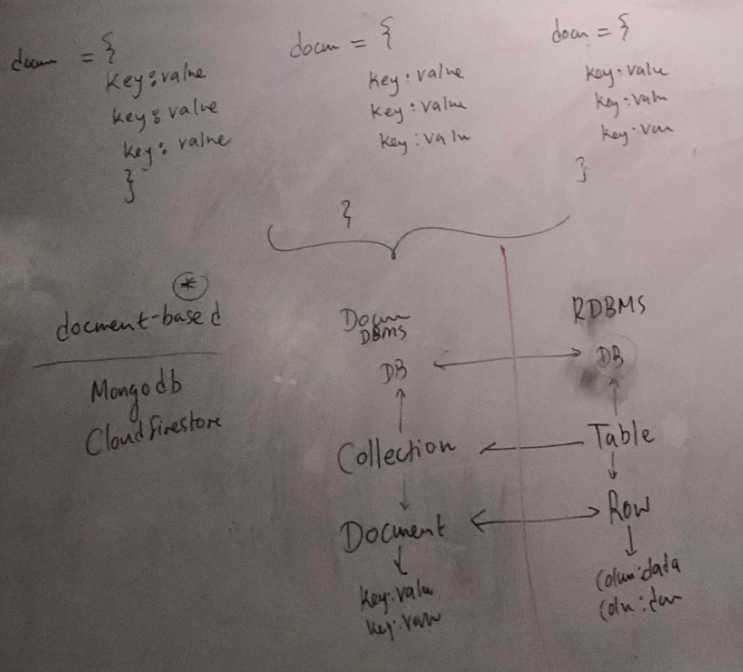 docum = {
key: value
key: value
key: value
}
docum = {
key: value
key: value
key: valu
}
docum = {
key: value
key: valu
key: van
}
*
docment-based
Mongodb
Cloud firestore
Docum
DBMS
DB
Collection
Document
key: valu
key: van
RDBMS
DB
Table
Row
Colum: data
Colu: dan